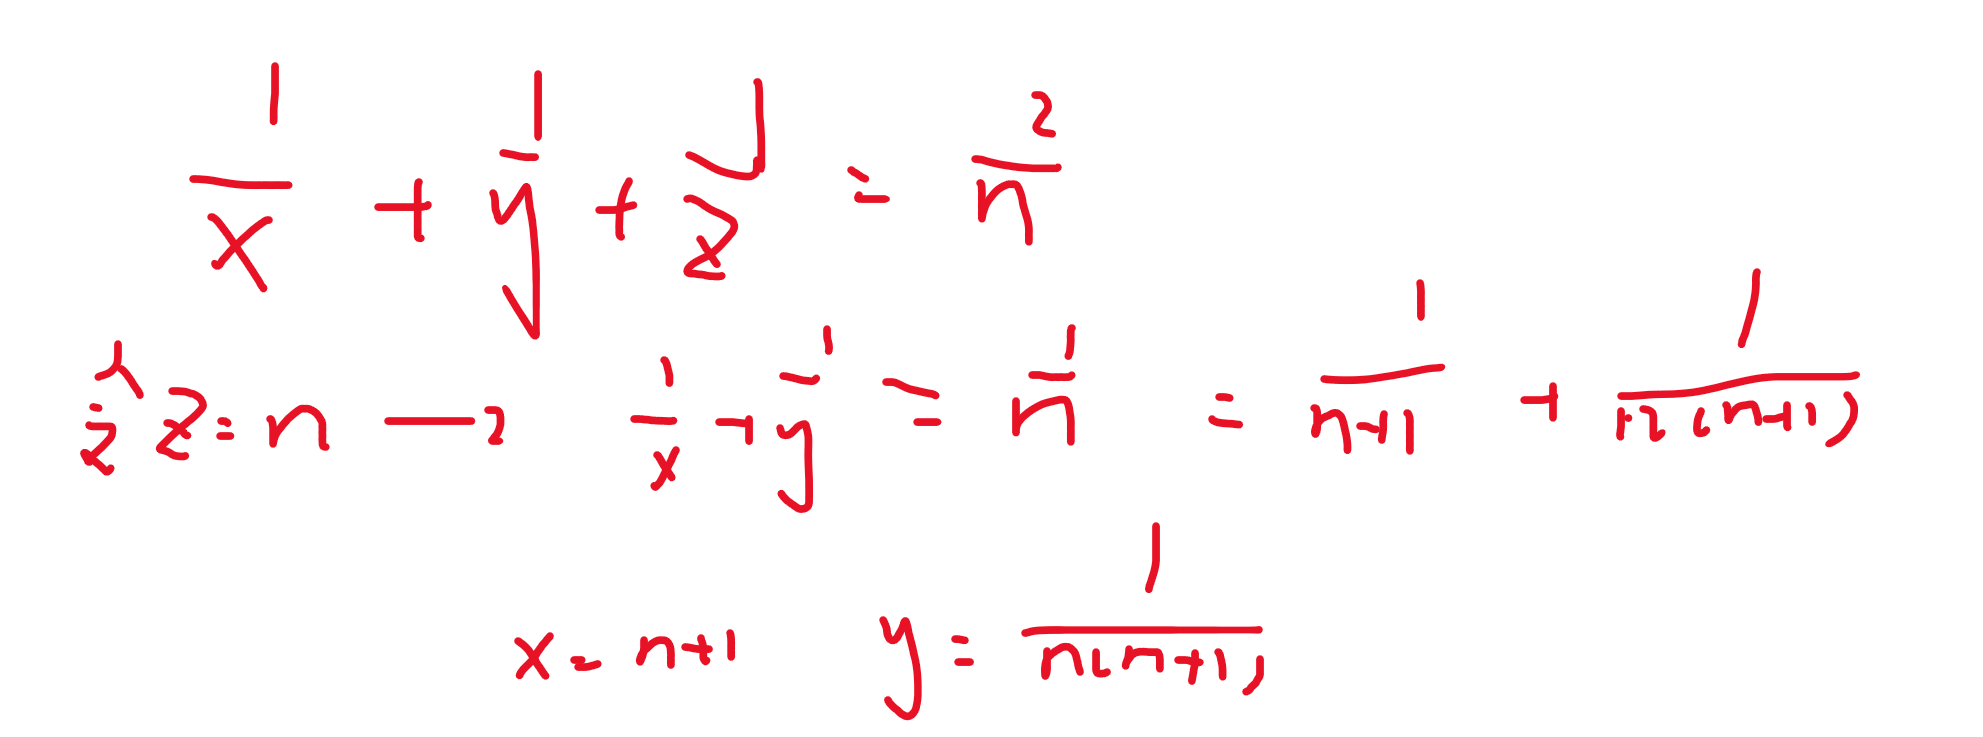 1/x + 1/y + 1/z = 2/n
令 z = n — 2 1/x + 1/y = 1/n = 1/(n+1) + 1/(n(n+1))
x = n+1 y = 1/(n(n+1))